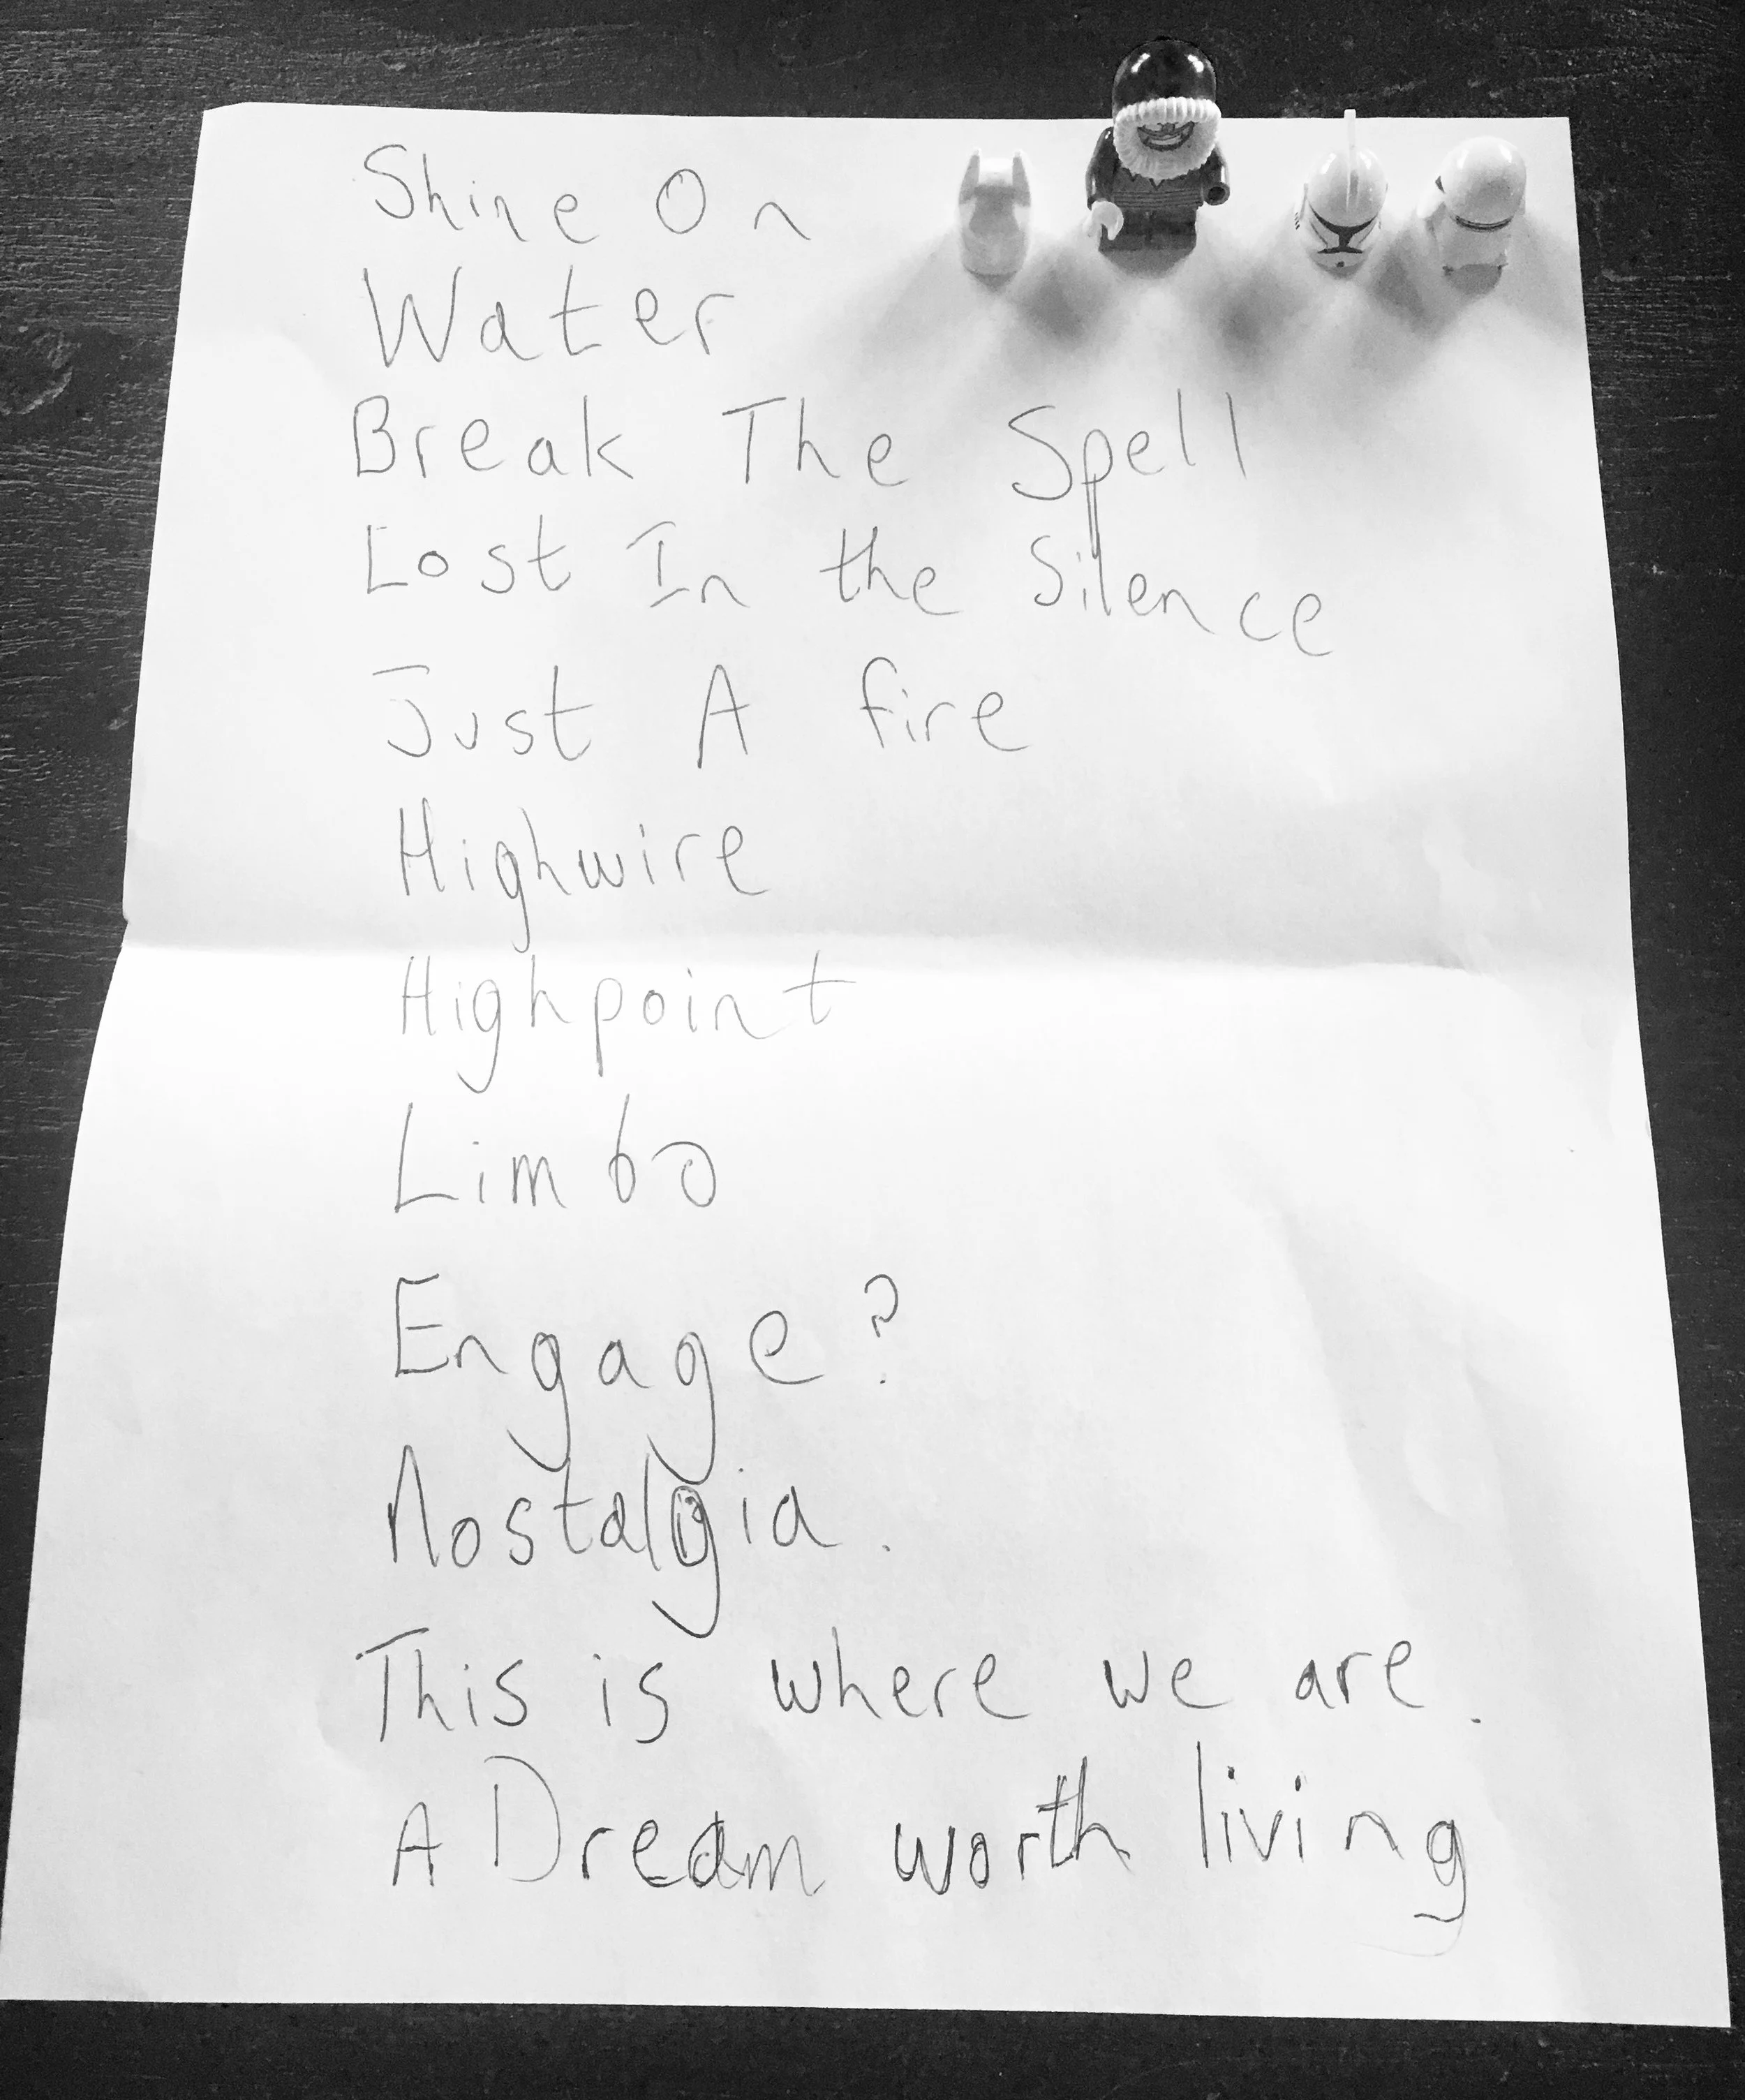 Shine On
Water
Break The Spell
Lost In the Silence
Just A fire
Highwire
Highpoint
Limbo
Engage?
Nostalgia.
This is where we are.
A Dream worth living